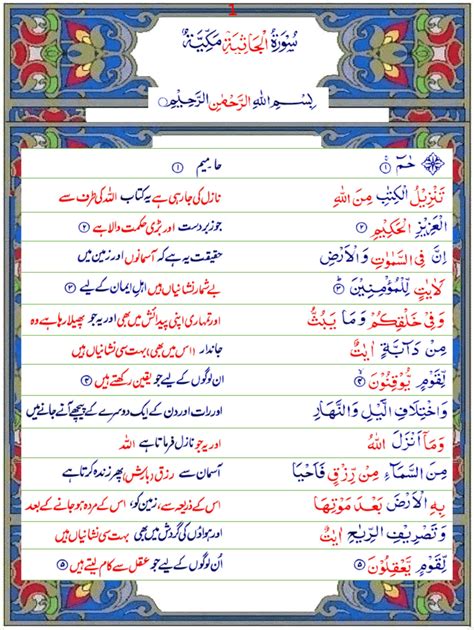 1
سُوۡرَةُ الۡجَاثِيَةِ مَكِّيَّةٌ
بِسۡمِ اللهِ الرَّحۡمٰنِ الرَّحِيۡمِ
حٰمٓ ۚ‏ ﴿۱﴾ حا۔ میم ﴿۱﴾
تَنۡزِيۡلُ الۡكِتٰبِ مِنَ اللّٰهِ نازل کی جارہی ہے یہ کتاب اللہ کی طرف سے
الۡعَزِيۡزِ الۡحَكِيۡمِ ﴿۲﴾ جو زبردست اور بڑی حکمت والا ہے ﴿۲﴾
اِنَّ فِى السَّمٰوٰتِ وَالۡاَرۡضِ حقیقت یہ ہے کہ آسمانوں اور زمین میں
لَاٰيٰتٍ لِّلۡمُؤۡمِنِيۡنَ ﴿۳﴾ بے شمار نشانیاں ہیں اہلِ ایمان کے لیے ﴿۳﴾
وَفِىۡ خَلۡقِكُمۡ وَمَا يَبُثُّ اور تمہاری اپنی پیدائش میں بھی اور یہ جو پھیلا رہا ہے وہ
مِنۡ دَآبَّةٍ اٰيٰتٌ جاندار (اس میں بھی) بہت سی نشانیاں ہیں
لِّقَوۡمٍ يُّوۡقِنُوۡنَ ﴿۴﴾ ان لوگوں کے لیے جو یقین رکھتے ہیں ﴿۴﴾
وَاخۡتِلَافِ الَّيۡلِ وَالنَّهَارِ اور رات اور دن کے ایک دوسرے کے پیچھے آنے جانے میں
وَمَاۤ اَنۡزَلَ اللّٰهُ اور یہ جو نازل فرماتا ہے اللہ
مِنَ السَّمَآءِ مِنۡ رِّزۡقٍ فَاَحۡيَا آسمان سے رزق (بارش) پھر زندہ کرتا ہے
بِهِ الۡاَرۡضَ بَعۡدَ مَوۡتِهَا اس کے ذریعہ سے، زمین کو، اس کے مردہ ہو جانے کے بعد
وَتَصۡرِيۡفِ الرِّيٰحِ اٰيٰتٌ اور ہواؤں کی گردش میں بھی بہت سی نشانیاں ہیں
لِّقَوۡمٍ يَّعۡقِلُوۡنَ ﴿۵﴾ اُن لوگوں کے لیے جو عقل سے کام لیتے ہیں ﴿۵﴾